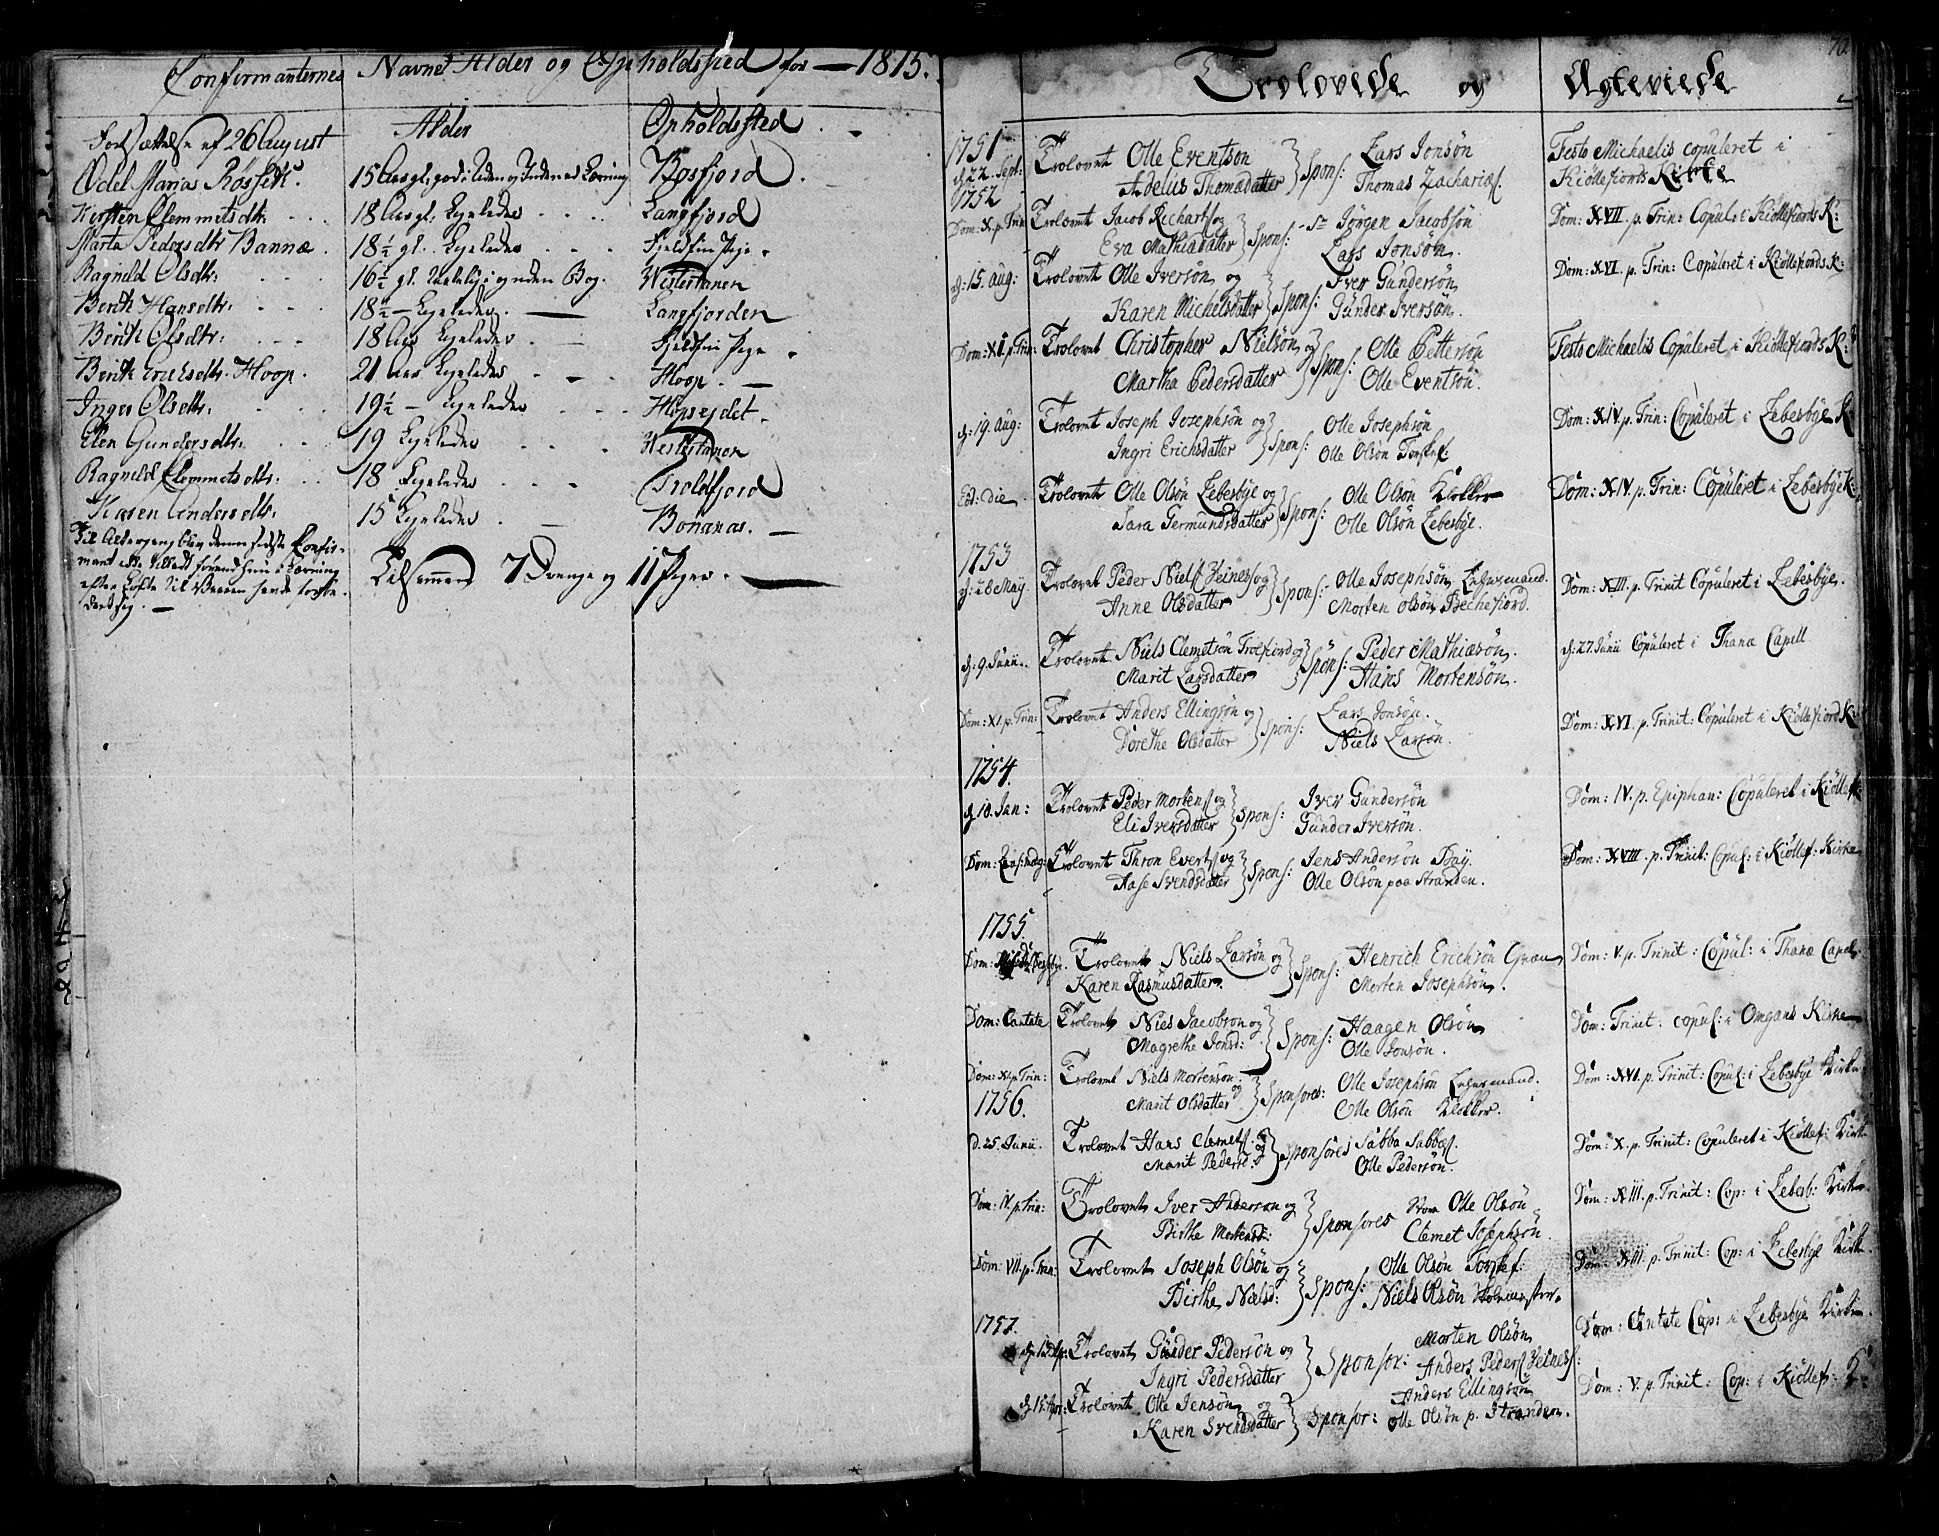 Confirmanternes Navne Alder og Opholdsted for — 1815.
Fortsættelse af 26 August
Alder
Opholdssted.
Edel Maria Røsset.
15 Aar gl. god i Læden og Kundskab Læsning
Bosfjord.
Kirsten Clemmetsdtr.
18 Aar gl. Ligeledes
Langfjord
Marta Pedersdtr Bannæ.
18½ gl. Ligeledes
Fieldfin Pige.
Ragnild Olsdtr.
16½ gl. i og uden Bog.
Westertanen
Berith Hansdtr.
18½ — Ligeledes.
Langfjorden
Berith Olsdtr:
18 Aar Ligeledes
Fieldfin Pige.
Berith Erichsdtr. Hoop.
21 Aar Ligeledes
Hoop.
Inger Olsdtr.
19½ — Ligeledes
Hopseydet.
Elen Gundersdtr.
19 Ligeledes
Westertanen
Ragnild Clemmetsdtr.
18 Ligeledes
Troldfjord
Karen Andersdtr.
15 Ligeledes
Bonanas.
Til Altergang blev denne sidste Confir-
mant ikke tilstedt førend hun i Læsning
efter Løfte til Præsten havde forbe-
dret sig. —
Tilsammen 7 Drenge og 11 Piger.
70.
Trolovede og Ægteviede
1751
d. 22. Sept:
Trolovet Olle Eventsøn
Adelus Thomædatter } Spons:
Lars Jonsøn
Thomas Zachariæs.
Festo Michaelis copuleret i
Kiøllefiords Kirke
1752
Dom: X. p. Trin:
Trolovet Jacob Richarts og
Eva Mathiædatter } Spons:
Sr Jörgen Jacobsön
Lars Jonsøn.
Dom: XVII. p. Trin: Copul: i Kiøllefiords K:
d: 15. aug:
Trolovet Olle Iversøn og
Karen Michelsdatter } Spons:
Iver Gundersøn
Gunder Iversøn.
Dom: XVI. p. Trin: Copuleret i Kiöllefiords K:
Dom: XII. p. Trin:
Trolovet Christopher Nielsøn og
Martha Pedersdatter } Spons:
Olle Pettersøn
Olle Eventsøn.
Festo Michaelis Copuleret i Kiöllefiords K:
d: 19. aug:
Trolovet Joseph Josephsön og
Ingri Erichsdatter } Spons:
Olle Josephsön
Olle Olsön Torskef:
Dom: XIV. p. Trin: Copuleret i Lebesbye K
Eod: die
Trolovet Olle Olsøn Lebesbye og
Sara Germundsdatter } Spons:
Olle Olsøn Klokker
Olle Olsøn Lebesbye.
Dom: XIV. p. Trin: Copuleret i Lebesbye K:
1753
d: 28 May
Trolovet Peder Niels Heines og
Anne Olsdatter } Spons:
Olle Josephsøn Lehnsmand.
Morten Olsøn Bechefiord.
Dom: XIII. p. Trinit Copuleret i Lebesbye.
d: 9. Junii.
Trolovet Niels Clemetsøn Trolfiord og
Marit Larsdatter } Spons:
Peder Mathiæsøn.
Hans Mortensøn.
d: 27. Junii Copuleret i Thanæ Capell
Dom: XI. p. Trin:
Trolovet Anders Ellingsøn og
Dorethe Olsdatter } Spons:
Lars Jonsøn.
Niels Larsøn.
Dom: XVI. p. Trinit: Copuleret i Kiöllefiord K:
1754.
d. 10. Jan:
Trolovet Peder Mortens og
Eli Iversdatter } Spons:
Iver Gundersøn
Gunder Iversøn.
Dom: IV. p. Epiphan: Copuleret i Kiöllef:
Dom: Quasimodog:
Trolovet Thron Everts og
Aase Svendsdatter } Spons:
Jens Andersøn Bay.
Olle Olsøn paa Stranden.
Dom: XVIII. p. Trinit: Copul: i Kiöllef: Kirke
1755.
Dom:
Trolovet Niels Larsøn og
Karen Rasmusdatter } Spons:
Henrich Erichsøn Græn
Morten Josephsøn.
Dom: V. p. Trinit: Copul: i Thanæ Capel.
Dom: Cantate
Trolovet Niels Jacobsøn og
Magrethe Jonsd: } Spons:
Haagen Olsøn
Olle Jonsøn.
Dom: Trinit: copul: i Omgans Kirke
Dom: XI. p. Trin:
Trolovet Niels Mortensøn og
Marit Olsdatter } Sponsores:
Olle Josephsøn Lehnsmand.
Olle Olsøn Klokker.
Dom: XVI. p. Trinit: Copul: i Lebesbye Kirke
1756.
d. 25. Junii.
Trolovet Hans Clemets: og
Marit Pedersd: } Sponsores
Sabba Sabbæs.
Olle Pedersøn.
Dom: X. p. Trinit: Copuleret i Kiöllef: Kirk
Dom: IV. p. Trin:
Trolovet Iver Andersøn og
Birthe Mortensd: } Sponsores
Olle Olsøn
Clemet Josephsøn.
Dom: XIII. p. Trinit: Cop: i Lebesb: Kirke
Dom: VII. p. Trin:
Trolovet Joseph Olsøn og
Birthe Nielsd: } Spons:
Olle Olsøn Torskef:
Niels Olsøn
Dom: XIII. p. Trinit: Cop: i Lebesbye Kirk.
1757.
Trolovet Gunder Pedersøn og
Ingri Pedersdatter } Sponsor:
Morten Olsøn
Anders Peders Heines:
Dom: Cantate Cop: i Lebesbye Kirke.
d. 15. Apr:
Trolovet Olle Jensøn og
Karen Svendsdatter } Sponsor:
Anders Ellingsøn
Olle Olsøn p. Stranden.
Dom: V. p. Trinit: Cop: i Kiöllef: K: